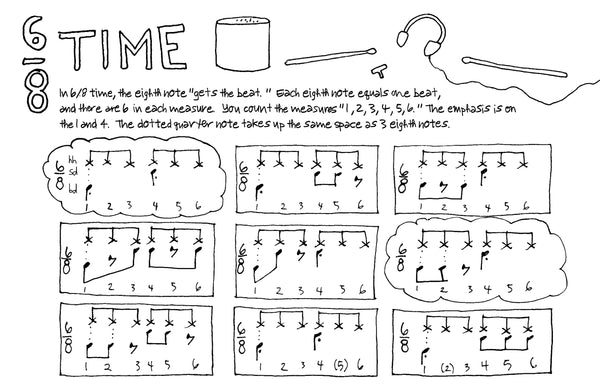 6/8 TIME
In 6/8 time, the eighth note "gets the beat." Each eighth note equals one beat,
and there are 6 in each measure. You count the measures "1, 2, 3, 4, 5, 6." The emphasis is on
the 1 and 4. The dotted quarter note takes up the same space as 3 eighth notes.
hh
sd
bd
6/8 1 2 3 4 5 6
6/8 1 2 3 4 5 6
6/8 1 2 3 4 5 6
6/8 1 2 3 4 5 6
6/8 1 2 3 4 5 6
6/8 1 2 3 4 5 6
6/8 1 2 3 4 5 6
6/8 1 2 3 4 (5) 6
6/8 1 (2) 3 4 5 6